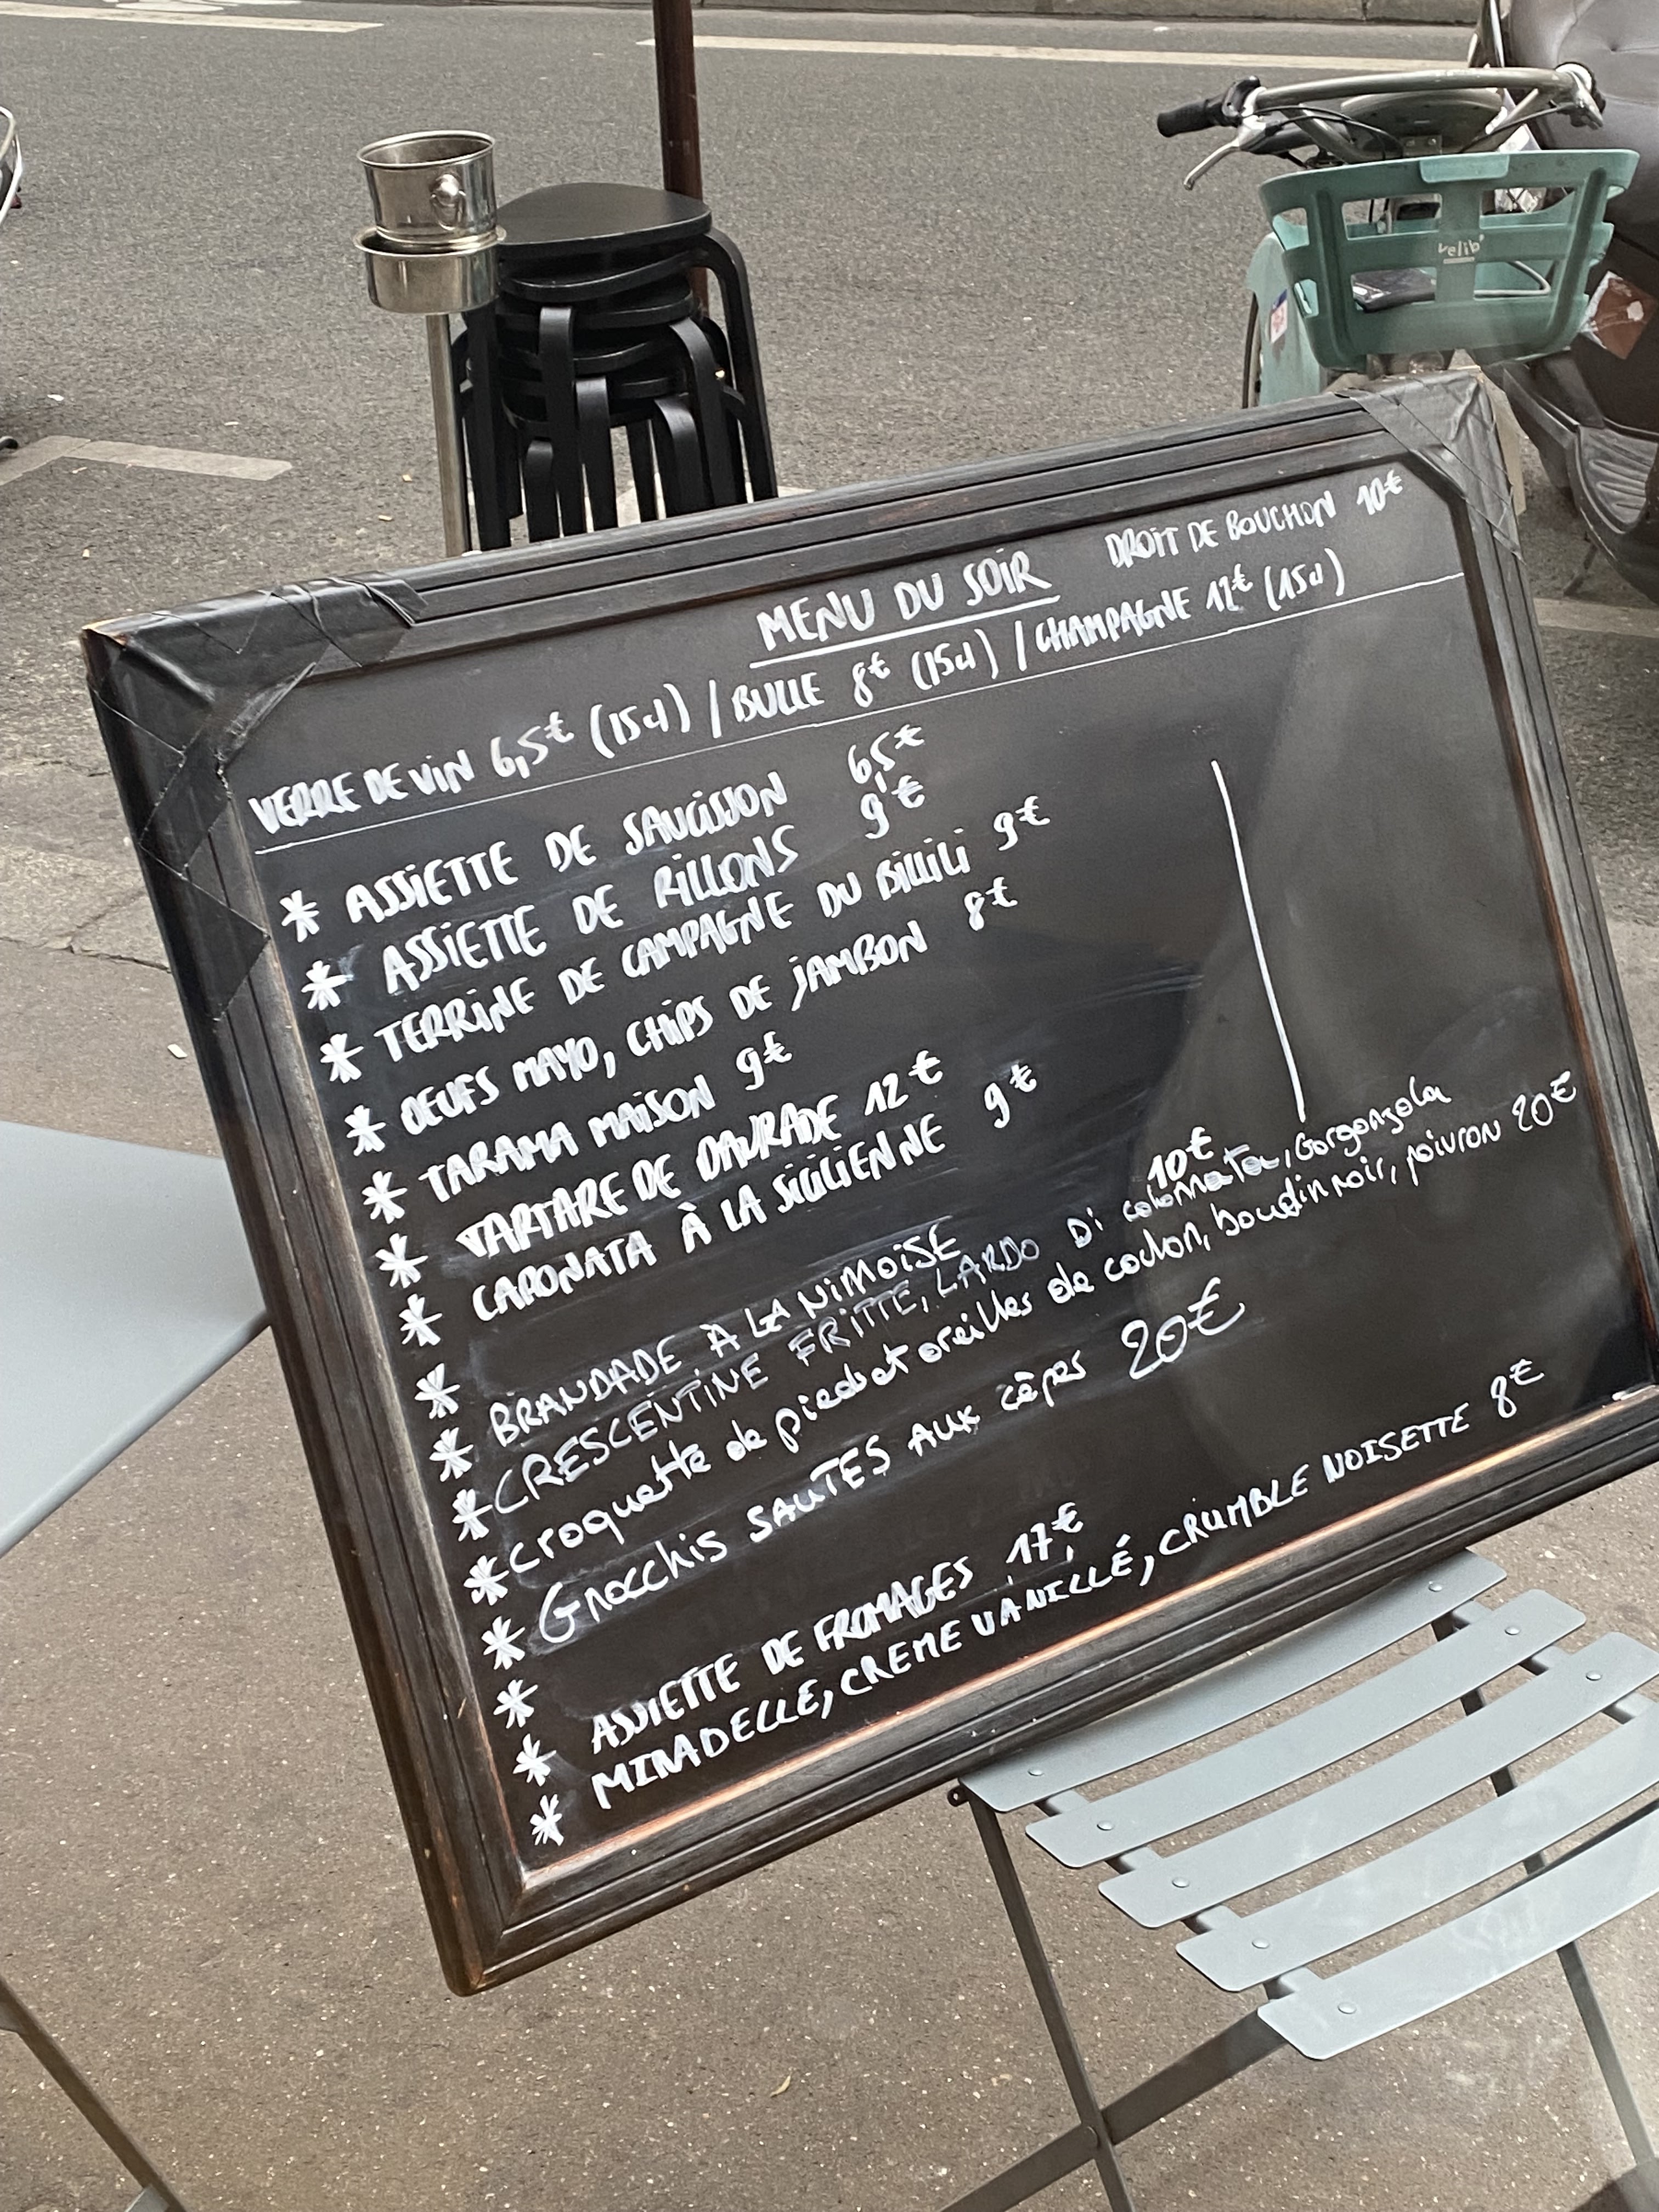 velib'
MENU DU SOIR DROIT DE BOUCHON 10€
VERRE DE VIN 6,5€ (15cl) / BULLE 8€ (15cl) / CHAMPAGNE 12€ (15cl)
* ASSIETTE DE SAUCISSON 6,5€
* ASSIETTE DE RILLONS 9€
* TERRINE DE CAMPAGNE DU BILLILI 9€
* OEUFS MAYO, CHIPS DE JAMBON 8€
* TARAMA MAISON 9€
* TARTARE DE DAURADE 12€
* CAPONATA À LA SICILIENNE 9€
* BRANDADE À LA NIMOISE 10€
* CRESCENTINE FRITTE, LARDO Di colonnata, Gorgonzola
* croquette de pied et oreilles de cochon, boudin noir, poivron 20€
* Gnocchis SAUTES AUX cèpes 20€
*
*
* ASSIETTE DE FROMAGES 17€
* MIRADELLE, CREME VANILLÉ, CRUMBLE NOISETTE 8€